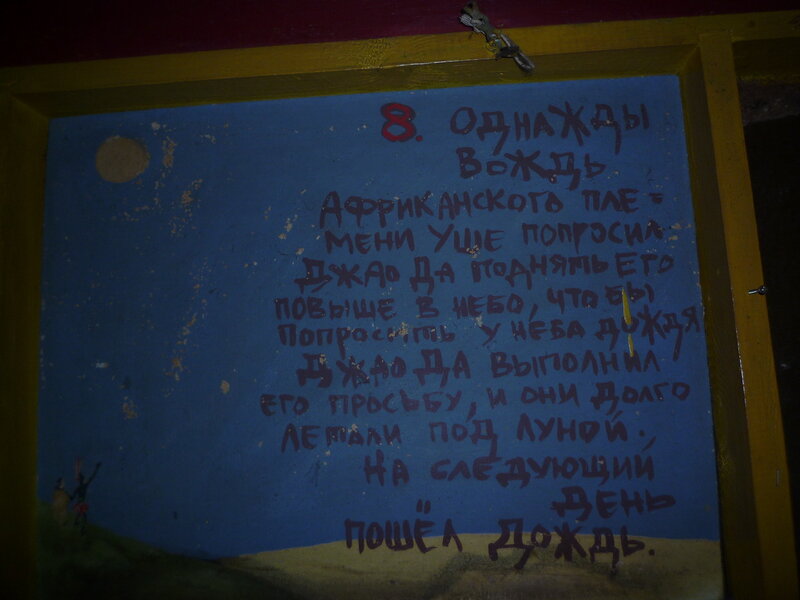 8. Однажды
вождь
африканского пле-
мени Уше попросил
Джао Да поднять его
повыше в небо, чтобы
попросить у неба дождя
Джао Да выполнил
его просьбу, и они долго
летали под луной.
На следующий
день
пошёл дождь.